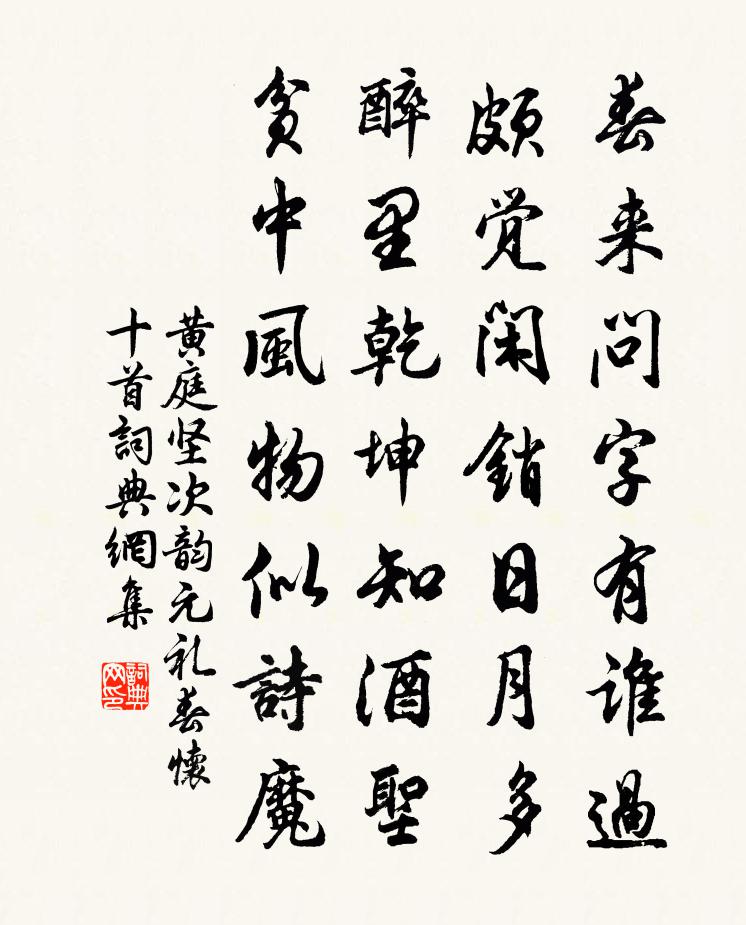 春来问字有谁過
颇覚闲銷日月多
醉里乾坤知酒聖
貧中風物似詩魔
黄庭坚次韵元礼春懷
十首詞典網集
詞典网印